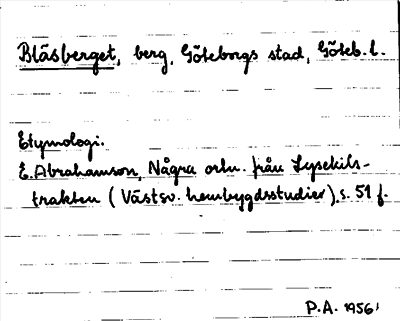 Blåsberget, berg, Göteborgs stad, Göteb. l.
Etymologi.
E. Abrahamson, Några ortn. från Lysekils-
trakten (Västsv. hembygdsstudier), s. 51 f.
P.A. 1956